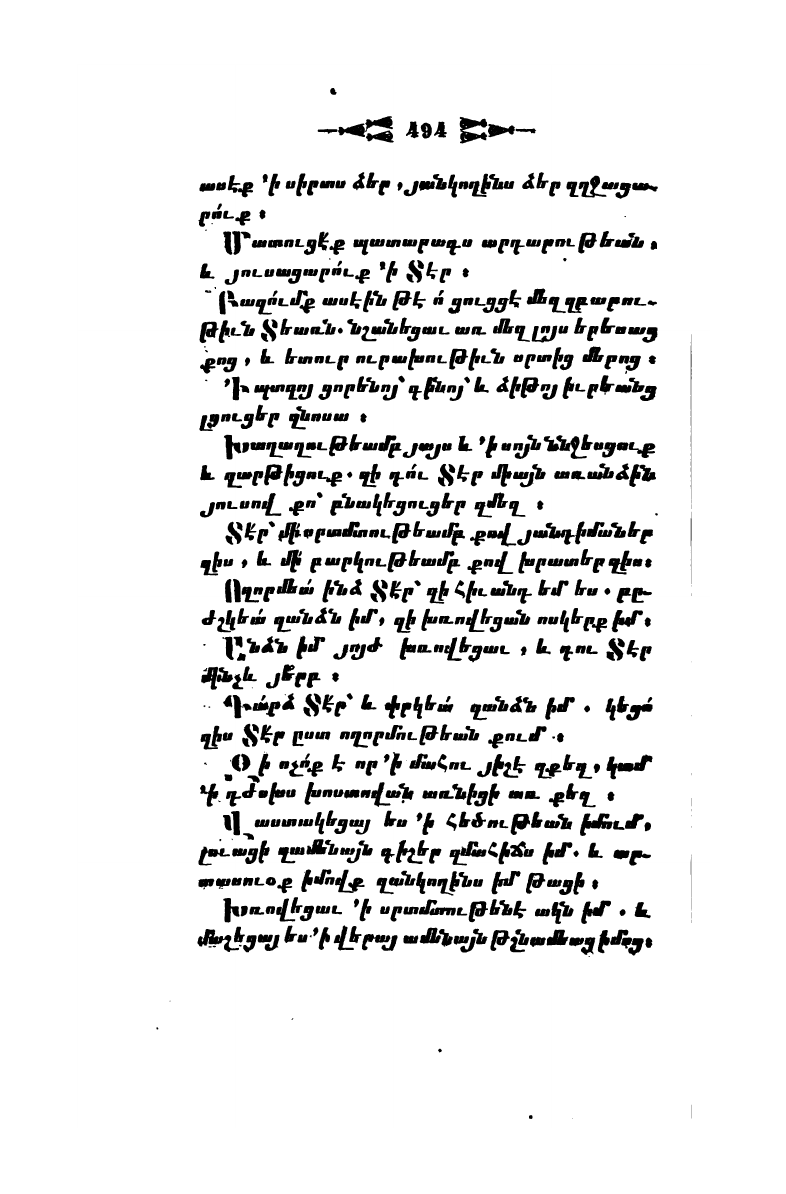 494
ասէք ՚ի սիրտս ձեր, յանկողինս ձեր զղջացա-
րո՛ւք։
Մատուցէ՛ք պատարագս արդարութեան,
և յուսացարո՛ւք ՚ի Տէր։
Բազո՛ւմք ասէին թէ ո՛ ցուցցէ մեզ զբարու-
թիւն Տեառն. նշանեցաւ առ մեզ լոյս երեսաց
քոց, և ետուր ուրախութիւն սրտից մերոց։
՚Ի պտղոյ ցորենոյ՝ գինոյ՝ և ձիթոյ իւրեանց
լցուցեր զնոսա։
Խաղաղութեամբ յայս և ՚ի սոյն ննջեսցուք
և զարթիցուք. զի դո՛ւ Տէր միայն առանձին
յուսով քո՝ բնակեցուցեր զմեզ։
Տէր՝ մի՛ սրտմտութեամբ քով յանդիմաներ
զիս, և մի՛ բարկութեամբ քով խրատեր զիս։
Ողորմեա՛ ինձ Տէ՛ր՝ զի հիւանդ եմ ես. բը-
ժշկեա՛ զանձն իմ, զի խռովեցան ոսկերք իմ։
Անձն իմ յոյժ խռովեցաւ, և դու Տէր
մինչև յե՞րբ։
Դա՛րձ Տէ՛ր՝ և փրկեա՛ զանձն իմ. կեցո՛
զիս Տէ՛ր ըստ ողորմութեան քում։
Զի ոչո՛ք է որ ՚ի մահու յիշէ զքեզ, կամ
՚ի դժոխս խոստովան առնիցի առ քեզ։
Վաստակեցայ ես ՚ի հեծութեան իմում,
լուացի զամենայն գիշեր զմահիճս իմ. և ար-
տասուօք իմովք զանկողինս իմ թացի։
Խռովեցաւ ՚ի սրտմտութենէ ակն իմ. և
մաշեցայ ես ՚ի վերայ ամենայն թշնամեաց իմոց։